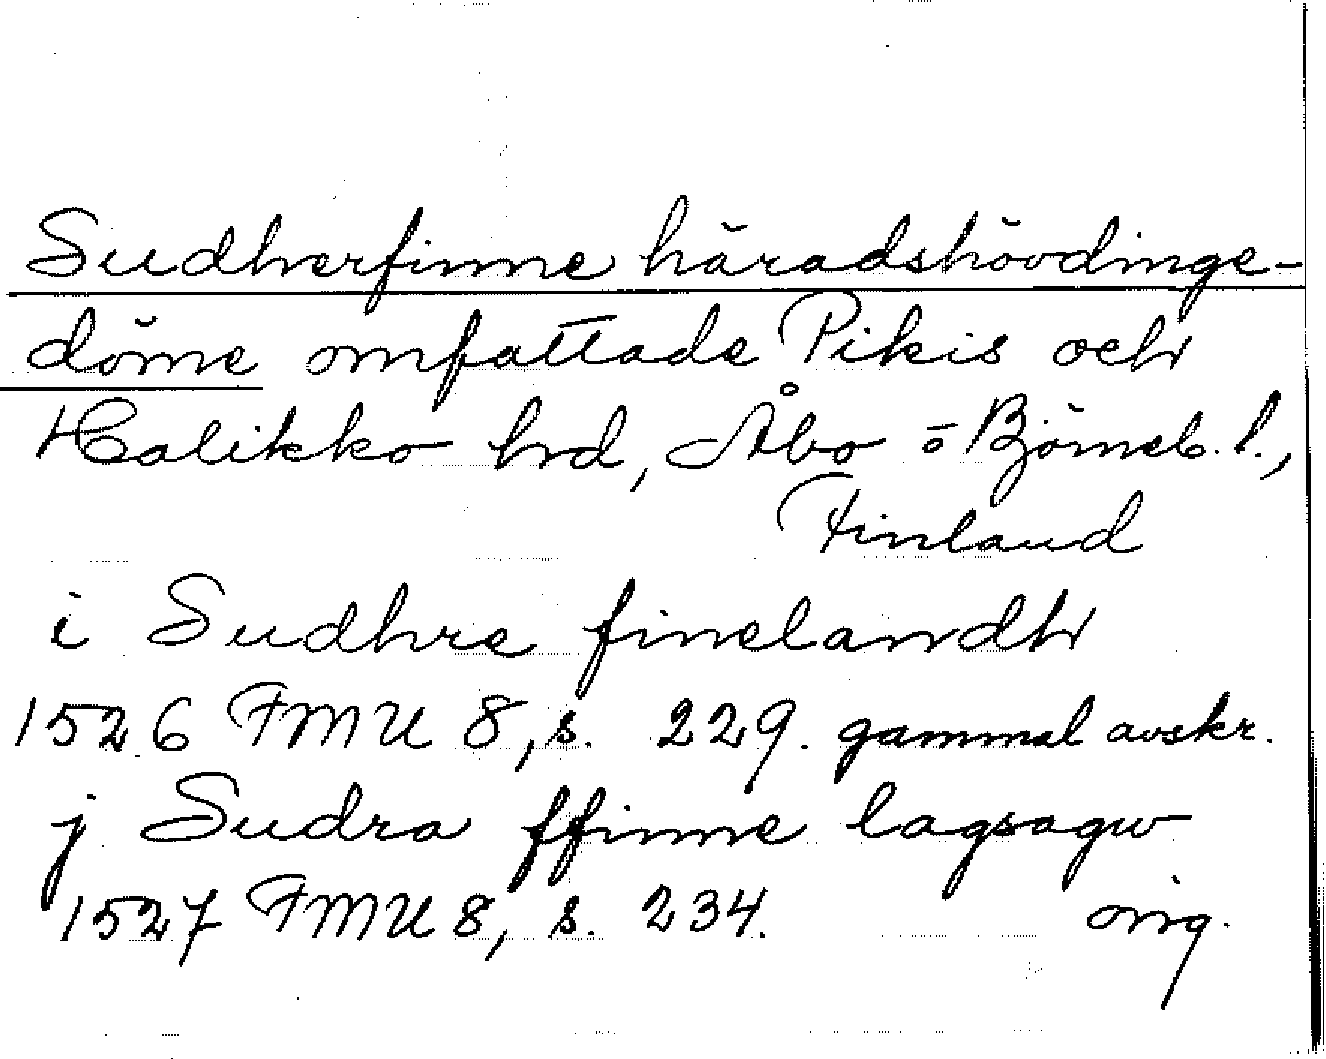 Sudherfinne häradshövdinge-
döme omfattade Pikis och
Halikko hrd, Åbo o Björneb. l.,
Finland
i Sudhre finelandh
1526 FMU 8, s. 229. gammal avskr.
j Sudra ffinne lagsagw
1527 FMU 8, s. 234. orig.